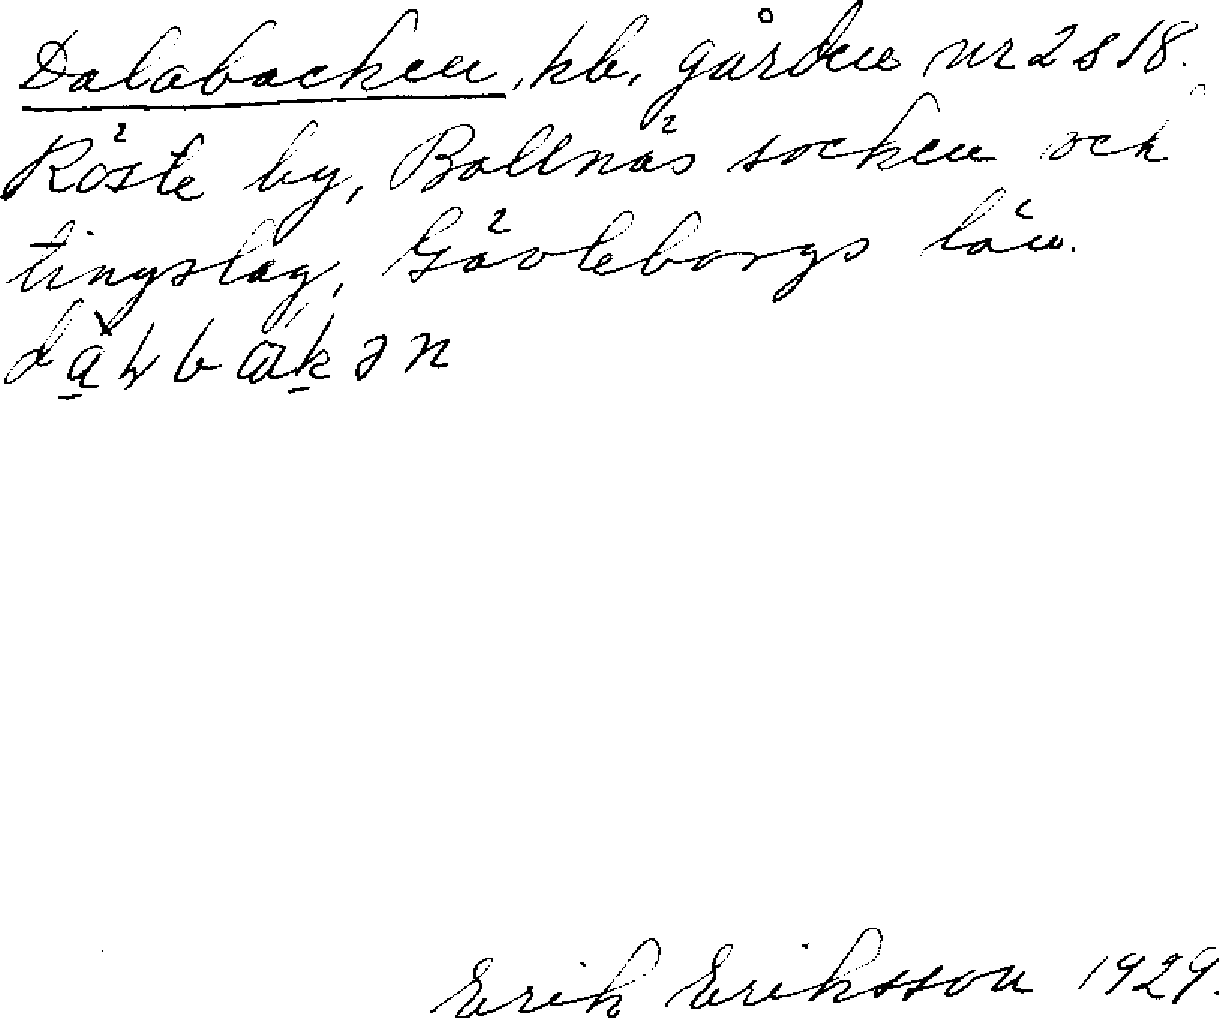 Dalabacken, kb, gården nr 2 & 18.
Röste by, Bollnäs socken och
tingslag, Gävleborgs län.
Erik Eriksson 1929.